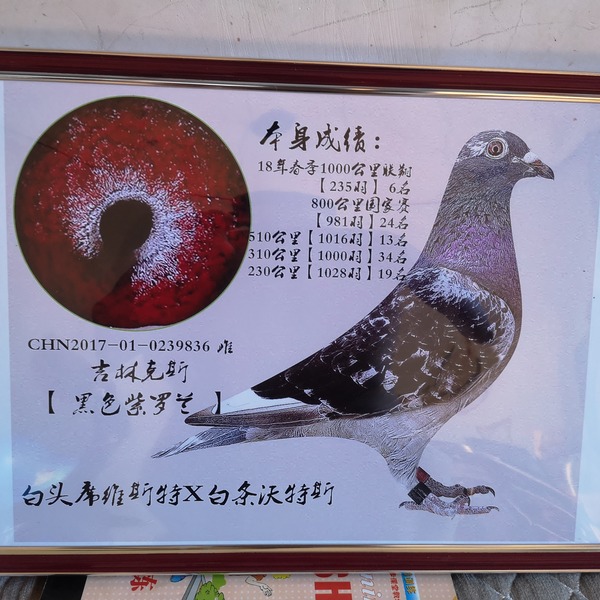 本身成绩：
18年春季1000公里联翔
【235羽】 6名
800公里国家赛
【981羽】24名
510公里【1016羽】13名
310公里【1000羽】34名
230公里【1028羽】19名
CHN2017-01-0239836 雌
吉林克斯
【 黑色紫罗兰 】
白头席维斯特X白条沃特斯
练